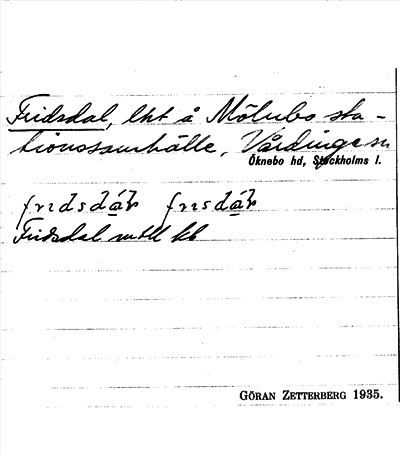 Fridsdal, lht å Mölnbo sta-
tionssamhälle, Vårdinge sn
Öknebo hd, Stockholms l.
frɪdsdáꞎ frɪsdáꞎ
Fridsdal
GÖRAN ZETTERBERG 1935.